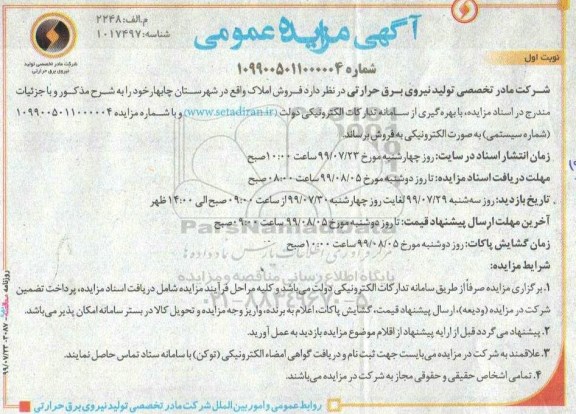 م.الف: ۲۲۴۸
شناسه: ۱۰۱۷۴۹۷
آگهی مزایده عمومی
شرکت مادر تخصصی تولید
نیروی برق حرارتی
نوبت اول
شماره ۱۰۹۹۰۰۵۰۱۱۰۰۰۰۰۴
شرکت مادر تخصصی تولید نیروی برق حرارتی در نظر دارد فروش املاک واقع در شهرستان چابهار خود را به شرح مذکور و با جزئیات
مندرج در اسناد مزایده، با بهره گیری از سامانه تدارکات الکترونیکی دولت (www.setadiran.ir) و با شماره مزایده ۱۰۹۹۰۰۵۰۱۱۰۰۰۰۰۴
(شماره سیستمی) به صورت الکترونیکی به فروش برساند.
زمان انتشار اسناد در سایت: روز چهارشنبه مورخ ۹۹/۰۷/۲۳ ساعت ۱۰:۰۰ صبح
مهلت دریافت اسناد مزایده: تا روز دوشنبه مورخ ۹۹/۰۸/۰۵ ساعت ۰۸:۰۰ صبح
تاریخ بازدید: روز سه شنبه ۹۹/۰۷/۲۹ لغایت روز چهارشنبه ۹۹/۰۷/۳۰ از ساعت ۰۹:۰۰ صبح الی ۱۴:۰۰ ظهر
آخرین مهلت ارسال پیشنهاد قیمت: تا روز دوشنبه مورخ ۹۹/۰۸/۰۵ ساعت ۰۹:۰۰ صبح
ParsNamadData
زمان گشایش پاکات: روز دوشنبه مورخ ۹۹/۰۸/۰۵ ساعت ۱۰:۰۰ صبح
شرایط مزایده:
پایگاه اطلاع رسانی مناقصه و مزایده
۱. برگزاری مزایده صرفاً از طریق سامانه تدارکات الکترونیکی دولت می باشد و کلیه مراحل فرآیند مزایده شامل دریافت اسناد مزایده، پرداخت تضمین
۰۲۱-۸۸۳۴۹۶۷۰-۵
شرکت در مزایده (ودیعه)، ارسال پیشنهاد قیمت، گشایش پاکات، اعلام به برنده، واریز وجه مزایده و تحویل کالا در بستر سامانه امکان پذیر می باشد.
۲. پیشنهاد می گردد قبل از ارایه پیشنهاد از اقلام موضوع مزایده بازدید به عمل آورید.
۳. علاقمند به شرکت در مزایده می بایست جهت ثبت نام و دریافت گواهی امضاء الکترونیکی (توکن) با سامانه ستاد تماس حاصل نمایند.
۴. تمامی اشخاص حقیقی و حقوقی مجاز به شرکت در مزایده می باشند.
روابط عمومی و امور بین الملل شرکت مادر تخصصی تولید نیروی برق حرارتی
روزنامه
۹۹/۰۷/۲۳